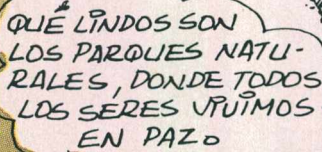 QUÉ LINDOS SON
LOS PARQUES NATU-
RALES, DONDE TODOS
LOS SERES VIVIMOS
EN PAZ.